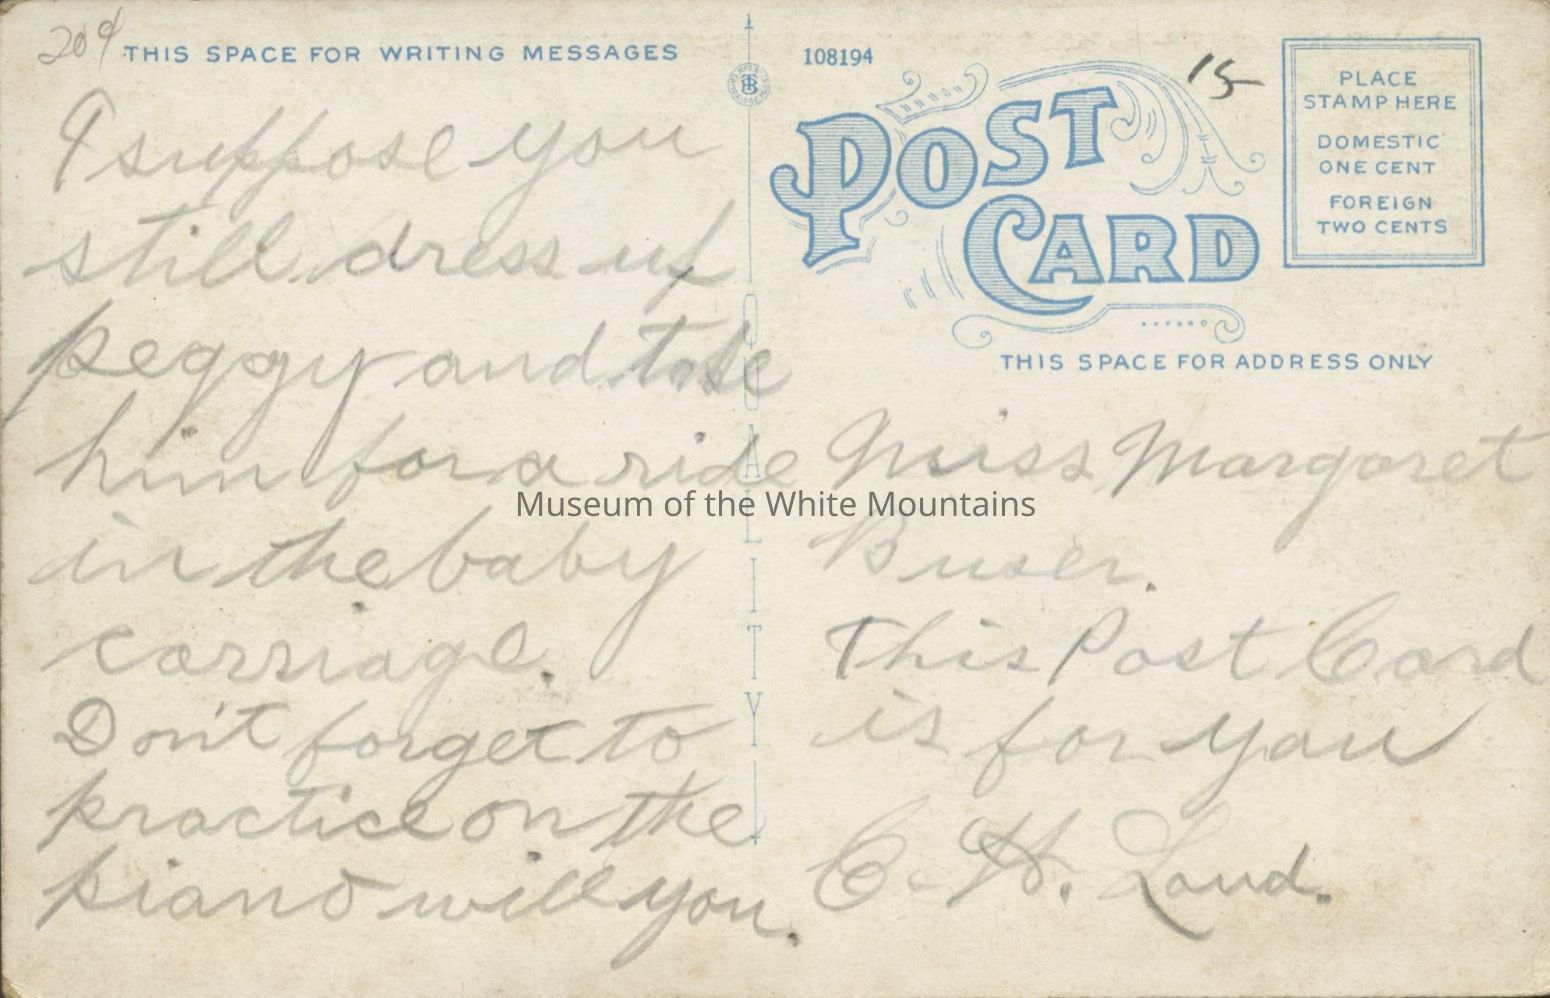 204
THIS SPACE FOR WRITING MESSAGES
I suppose you
still dress up
peggy and take
him for a ride
in the baby
carriage.
Don't forget to
practice on the
piano will you.
108194
15
POST
CARD
PLACE
STAMP HERE
DOMESTIC
ONE CENT
FOREIGN
TWO CENTS
THIS SPACE FOR ADDRESS ONLY
Miss Margaret
Buser.
This Post Card
is for you
C. H. Loud.
QUALITY
Museum of the White Mountains